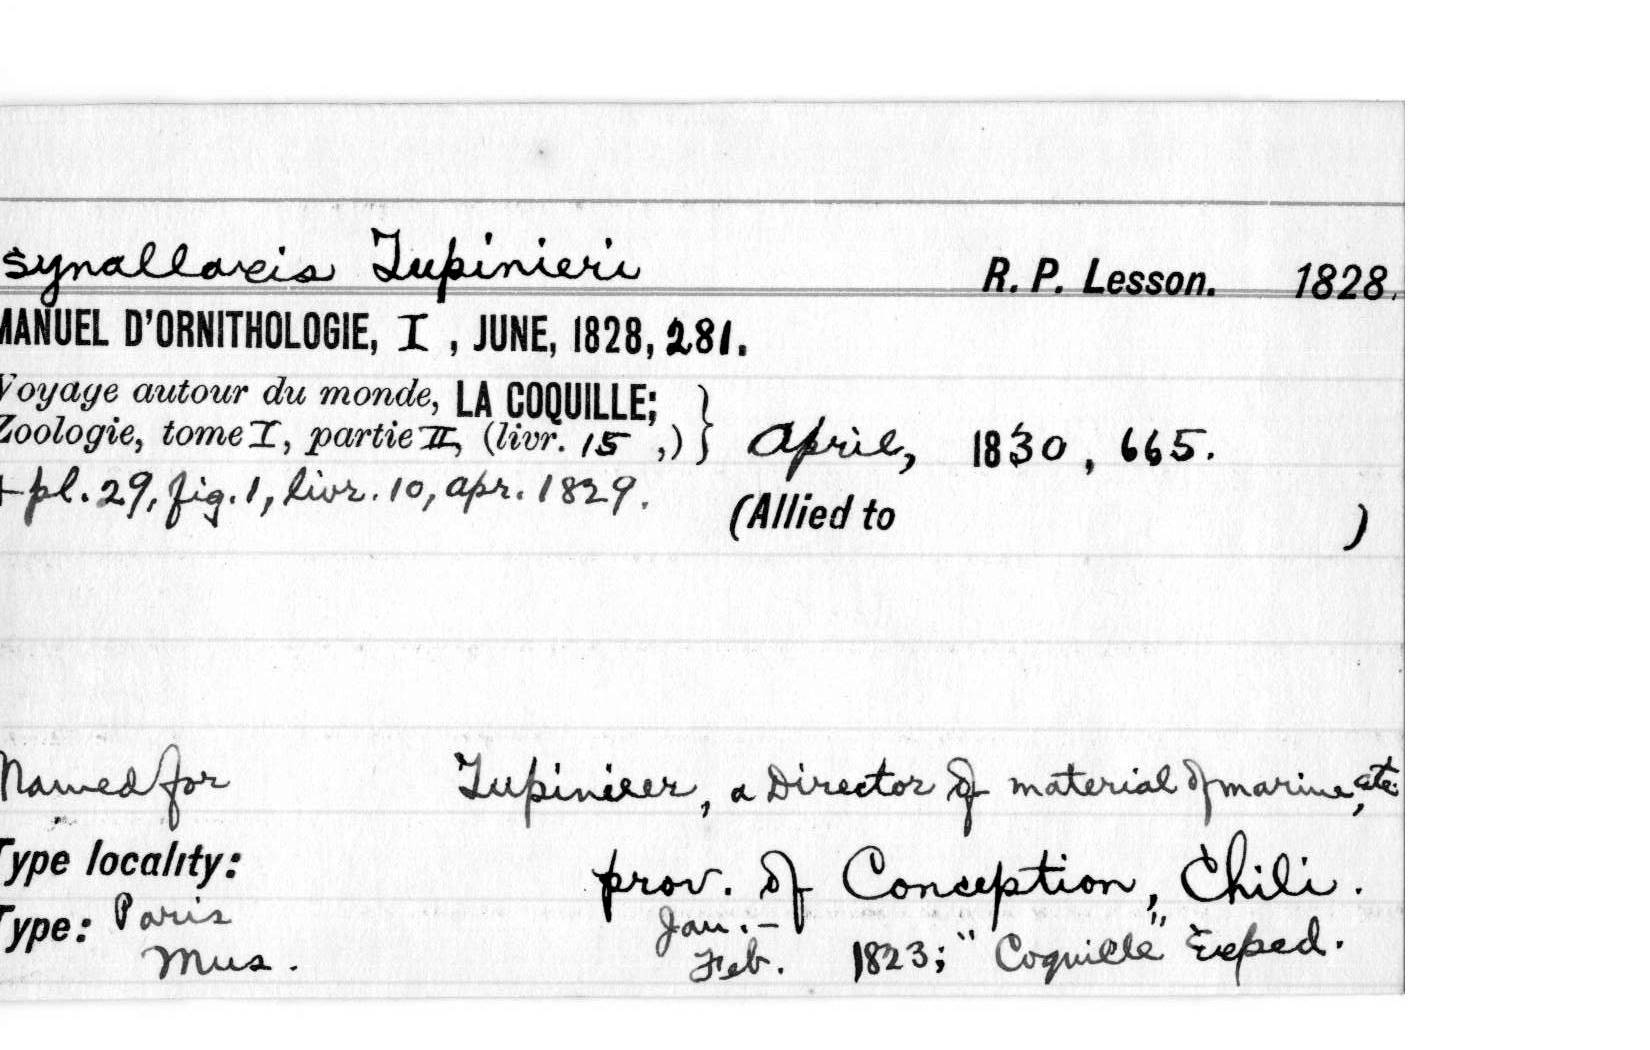 Synallaxis Tupinieri R. P. Lesson. 1828.
MANUEL D'ORNITHOLOGIE, I, JUNE, 1828, 281.
Voyage autour du monde, LA COQUILLE;
Zoologie, tome I, partie II, (livr. 15 ,) } April, 1830, 665.
+ pl. 29, fig. 1, livr. 10, apr. 1829.
(Allied to )
Named for Tupinier, a Director of material of marine, etc.
Type locality: prov. of Conception, Chili.
Type: Paris Mus. Jan. - Feb. 1823; "Coquille" Exped.